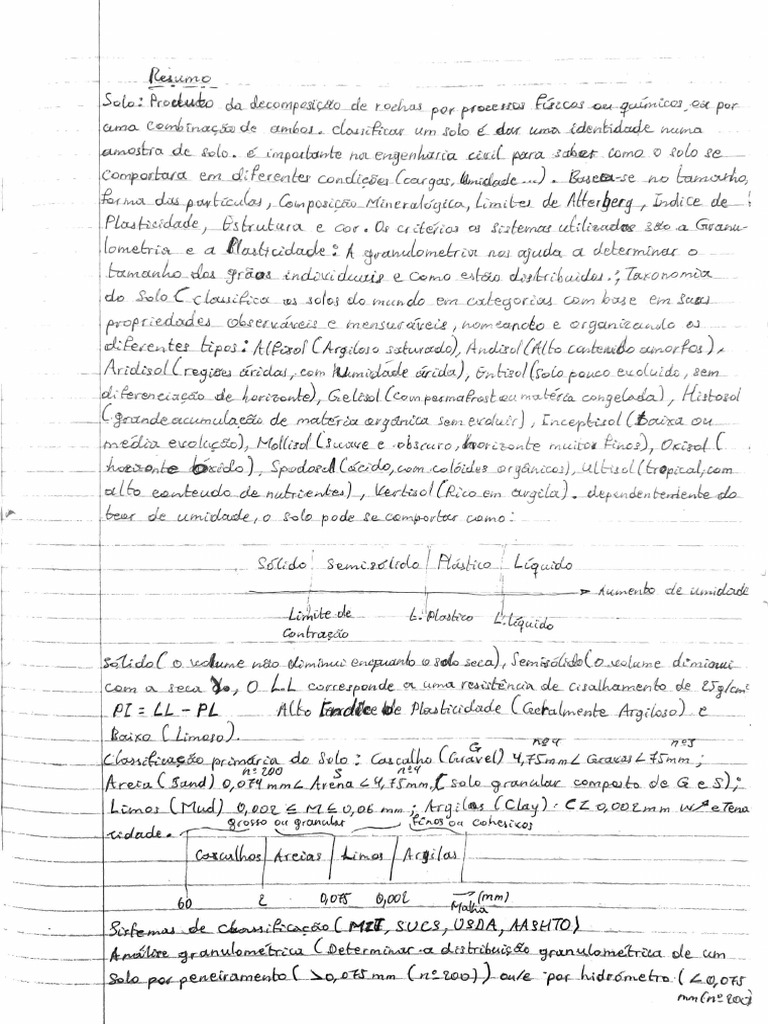 Resumo
Solo: Produto da decomposição de rochas por processos físicos ou químicos, ou por
uma combinação de ambos. Classificar um solo é dar uma identidade numa
amostra de solo. é importante na engenharia civil para saber como o solo se
comportara em diferentes condições (cargas, Umidade...). Basea-se no tamanho,
forma das partículas, Composição Mineralógica, Limites de Atterberg, Indice de
Plasticidade, Estrutura e cor. Os critérios os sistemas utilizados são a Granu-
lometria e a Plasticidade: A granulometria nos ajuda a determinar o
tamanho dos grãos individuais e como estão distribuidos.; Taxonomia
do Solo ( classifica os solos do mundo em categorias com base em suas
propriedades observáveis e mensuráveis, nomeando e organizando os
diferentes tipos: Alfisol (Argiloso saturado), Andisol (Alto conteudo amorfos),
Aridisol (regiões áridas, com humidade árida), Entisol (solo pouco evoluido, sem
diferenciação de horizonte), Gelisol (com permafrost ou matéria congelada), Histosol
(grande acumulação de matéria orgânica sem evoluir), Inceptisol (Baixa ou
média evolução), Mollisol (suave e obscuro, horizonte muitos finos), Oxisol (
horizonte óxido), Spodosol (ácido, com colóides orgânicos), Ultisol (tropical, com
alto conteudo de nutrientes), Vertisol (Rico em argila). dependentemente do
teor de umidade, o solo pode se comportar como:
Sólido Semisólido Plástico Líquido
Aumento de umidade
Limite de Contração L. Plastico L. líquido
Sólido (o volume não diminui enquanto o solo seca), Semisólido (o volume diminui
com a seca), O L.L corresponde a uma resistência de cisalhamento de 25g/cm²
PI = LL - PL Alto Indice de Plasticidade (Geralmente Argiloso) e
Baixo (Limoso).
Classificação primária do Solo: Cascalho (Gravel) G 4,75mm < Gravas < 75mm; nº4 nº3
Areia (Sand) 0,074 mm < Arena < 4,75mm, ( solo granular composto de G e S); nº200 S nº4
Limos (Mud) 0,002 ≤ M ≤ 0,06 mm; Argilas (Clay). C ≤ 0,002mm e Tena
cidade.
grosso ou granular finos ou cohesivos
Cascalhos Areias Limos Argilas
60 2 0,075 0,002 (mm)
Malha
Sistemas de Classificação (MIT, SUCS, USDA, AASHTO)
Análise granulométrica (Determinar a distribuição granulométrica de um
Solo por peneiramento (>0,075 mm (nº200)) ou/e por hidrómetro (<0,075
mm (nº200)